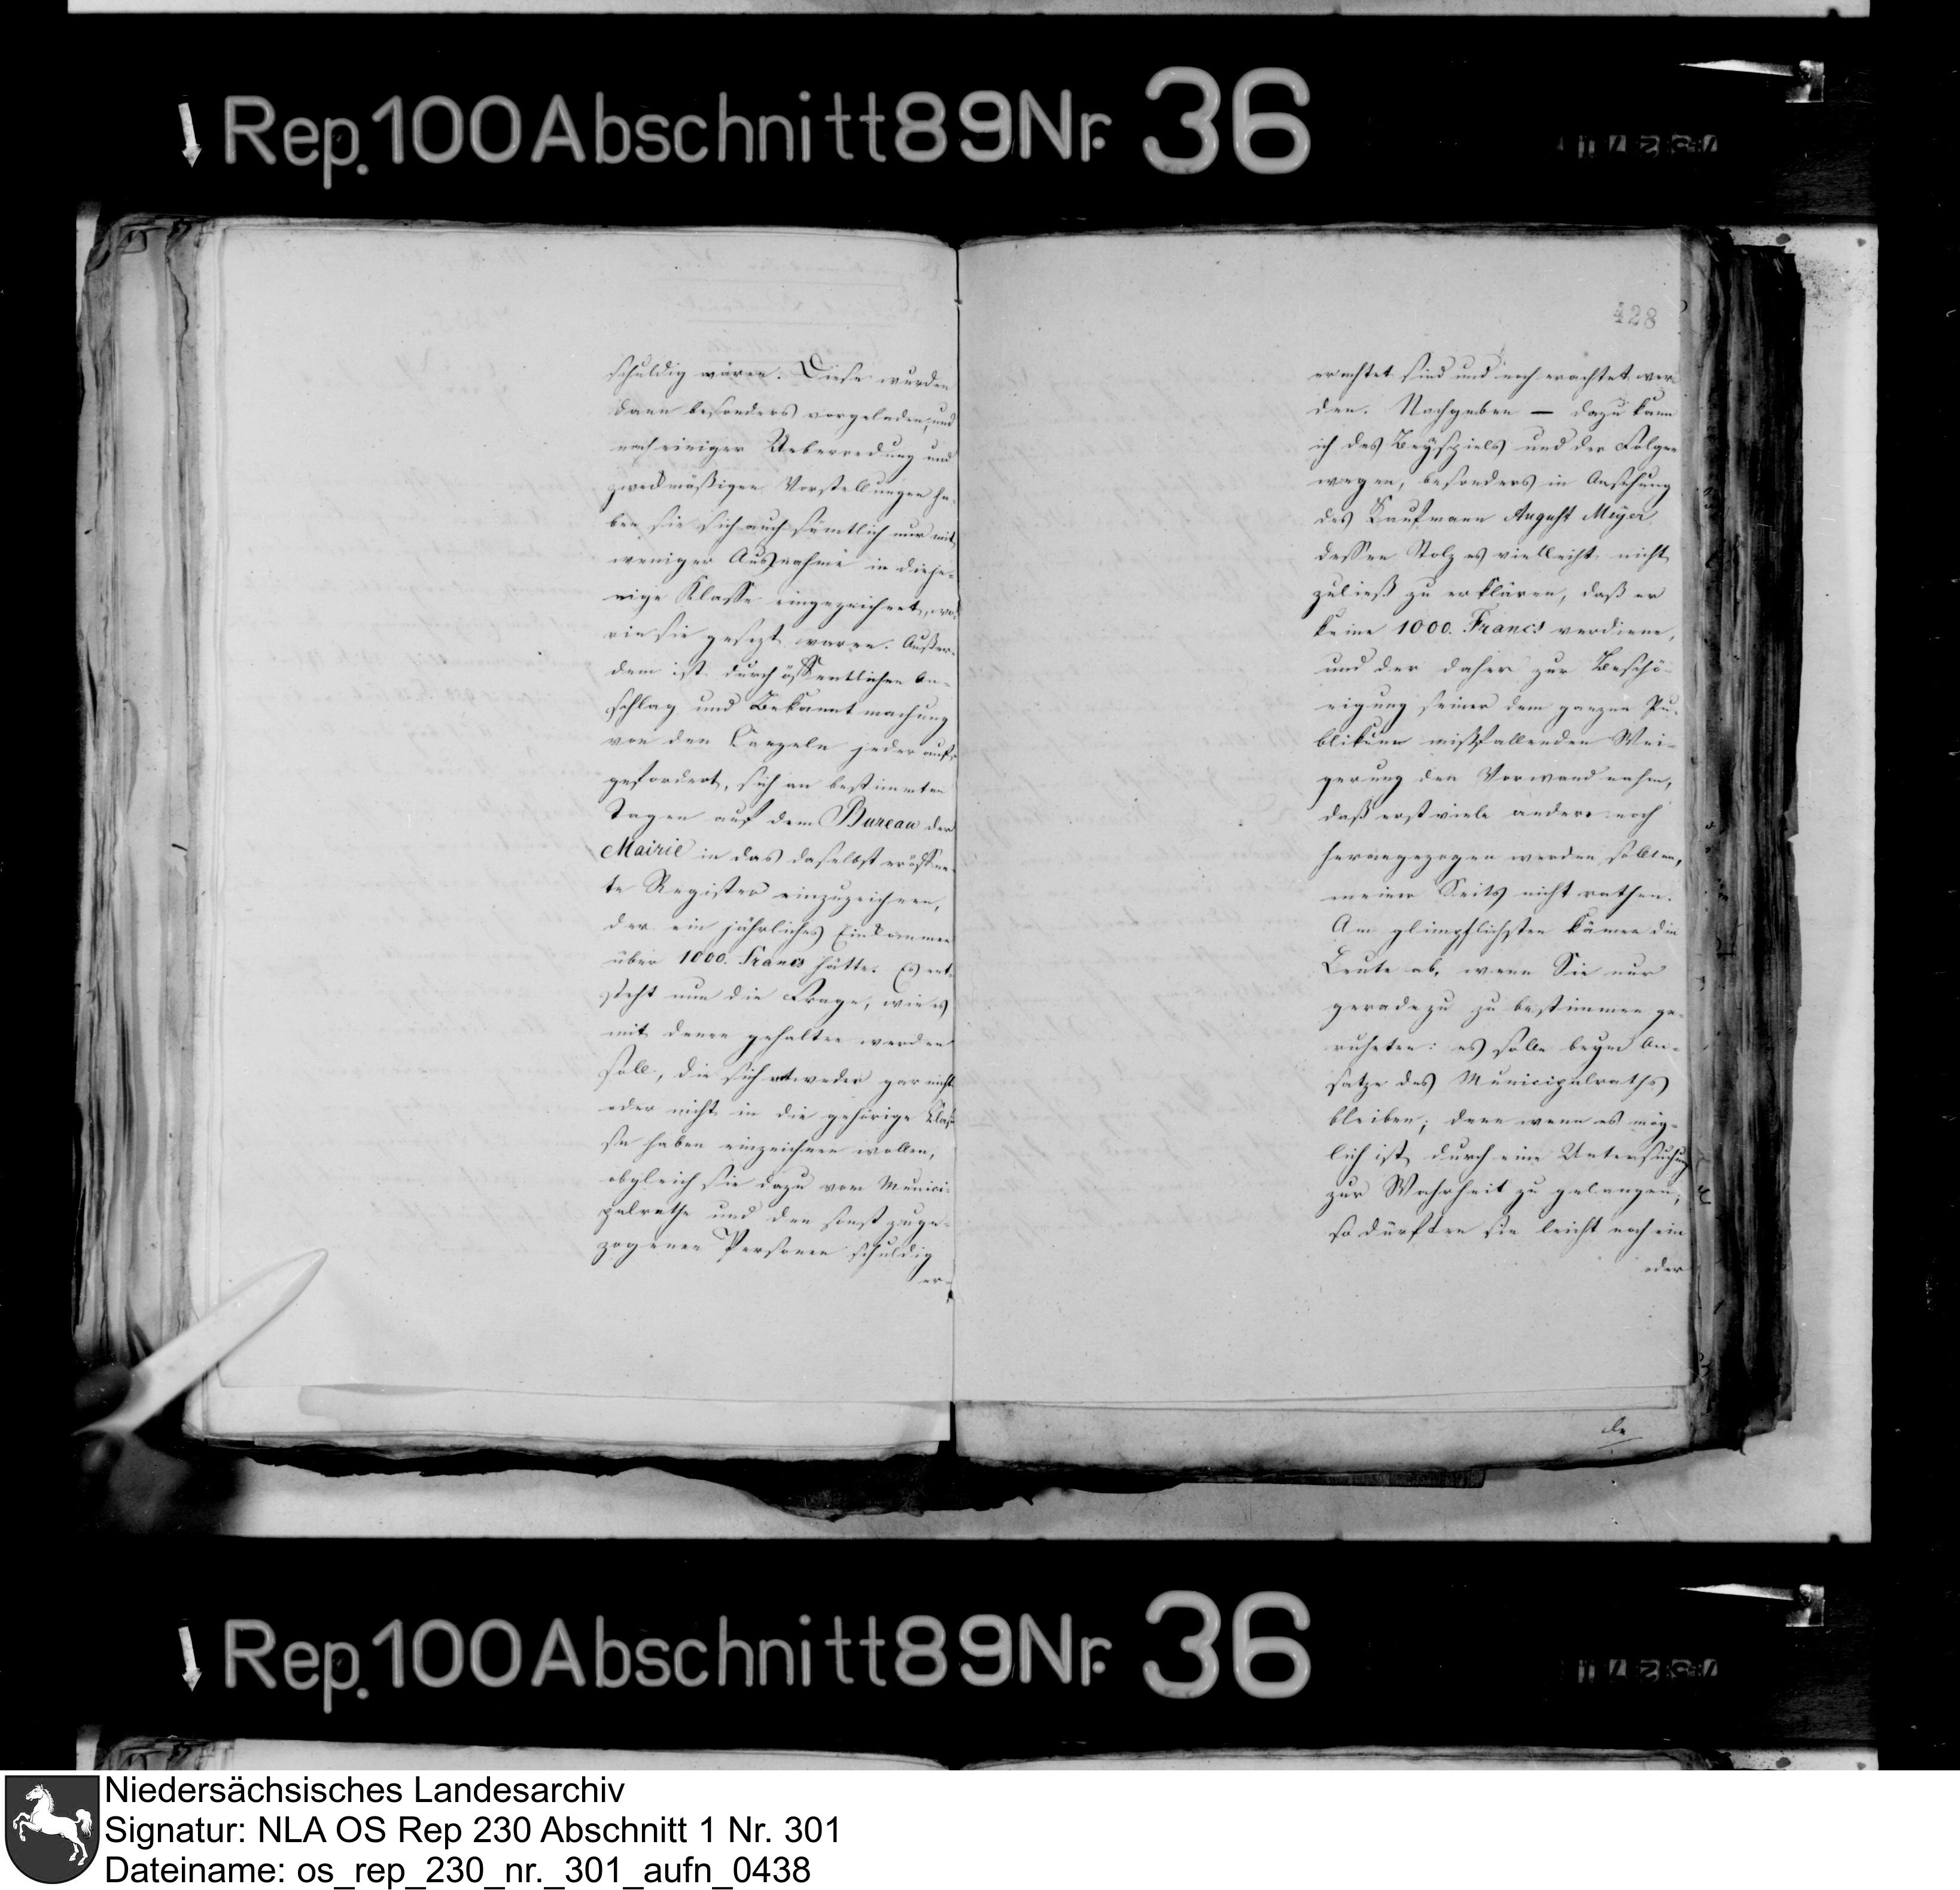 Rep.100Abschnitt89Nr. 36
schuldig wären. Diese wurden
dann besonders vorgeladen, und
nach einiger Ueberredung und
zweckmäßigen Vorstellungen ha-
ben sie sich auch sämtlich nur mit
weniger Ausnahme in dieje-
nige Klasse eingezeichnet, wo-
rin sie gesezt waren. Außer-
dem ist durch öffentlichen An-
schlag und Bekanntmachung
von den Canzeln jeder auf-
gefordert, sich an bestimmten
Tagen auf dem Bureau der
Mairie in das daselbst eröffne-
te Register einzuzeichnen,
der ein jährliches Einkommen
über 1000. Francs hätte. Es ent-
steht nun die Frage, wie es
mit denen gehalten werden
soll, die sich entweder gar nicht
oder nicht in die gehörige Clas-
se haben einzeichnen wollen,
obgleich sie dazu vom Munici-
palrathe und den sonst zuge-
zogenen Personen schuldig
er-
428
erachtet sind und noch erachtet wer-
den. Nachgeben — dazu kann
ich des Beyspiels und der Folgen
wegen, besonders in Ansehung
des Kaufmann August Meyer
dessen Stolz es vielleicht nicht
zuließ zu erklären, daß er
keine 1000. Francs verdiene,
und der daher zur Beschö-
nigung seiner dem ganzen Pu-
blikum mißfallenden Wei-
gerung den Vorwand nahm,
daß erst viele andere noch
herangezogen werden sollten,
meiner Seits nicht rathen.
Am glimpflichsten kämen die
Leute ab, wenn Sie nur
geradezu zu bestimmen ge-
ruheten: es solle beym An-
satze des Municipalraths
bleiben; denn wenn es mög-
lich ist, durch eine Untersuchung
zur Wahrheit zu gelangen,
so dürften sie leicht noch ein
oder
Rep.100Abschnitt89Nr. 36
Niedersächsisches Landesarchiv
Signatur: NLA OS Rep 230 Abschnitt 1 Nr. 301
Dateiname: os_rep_230_nr._301_aufn_0438